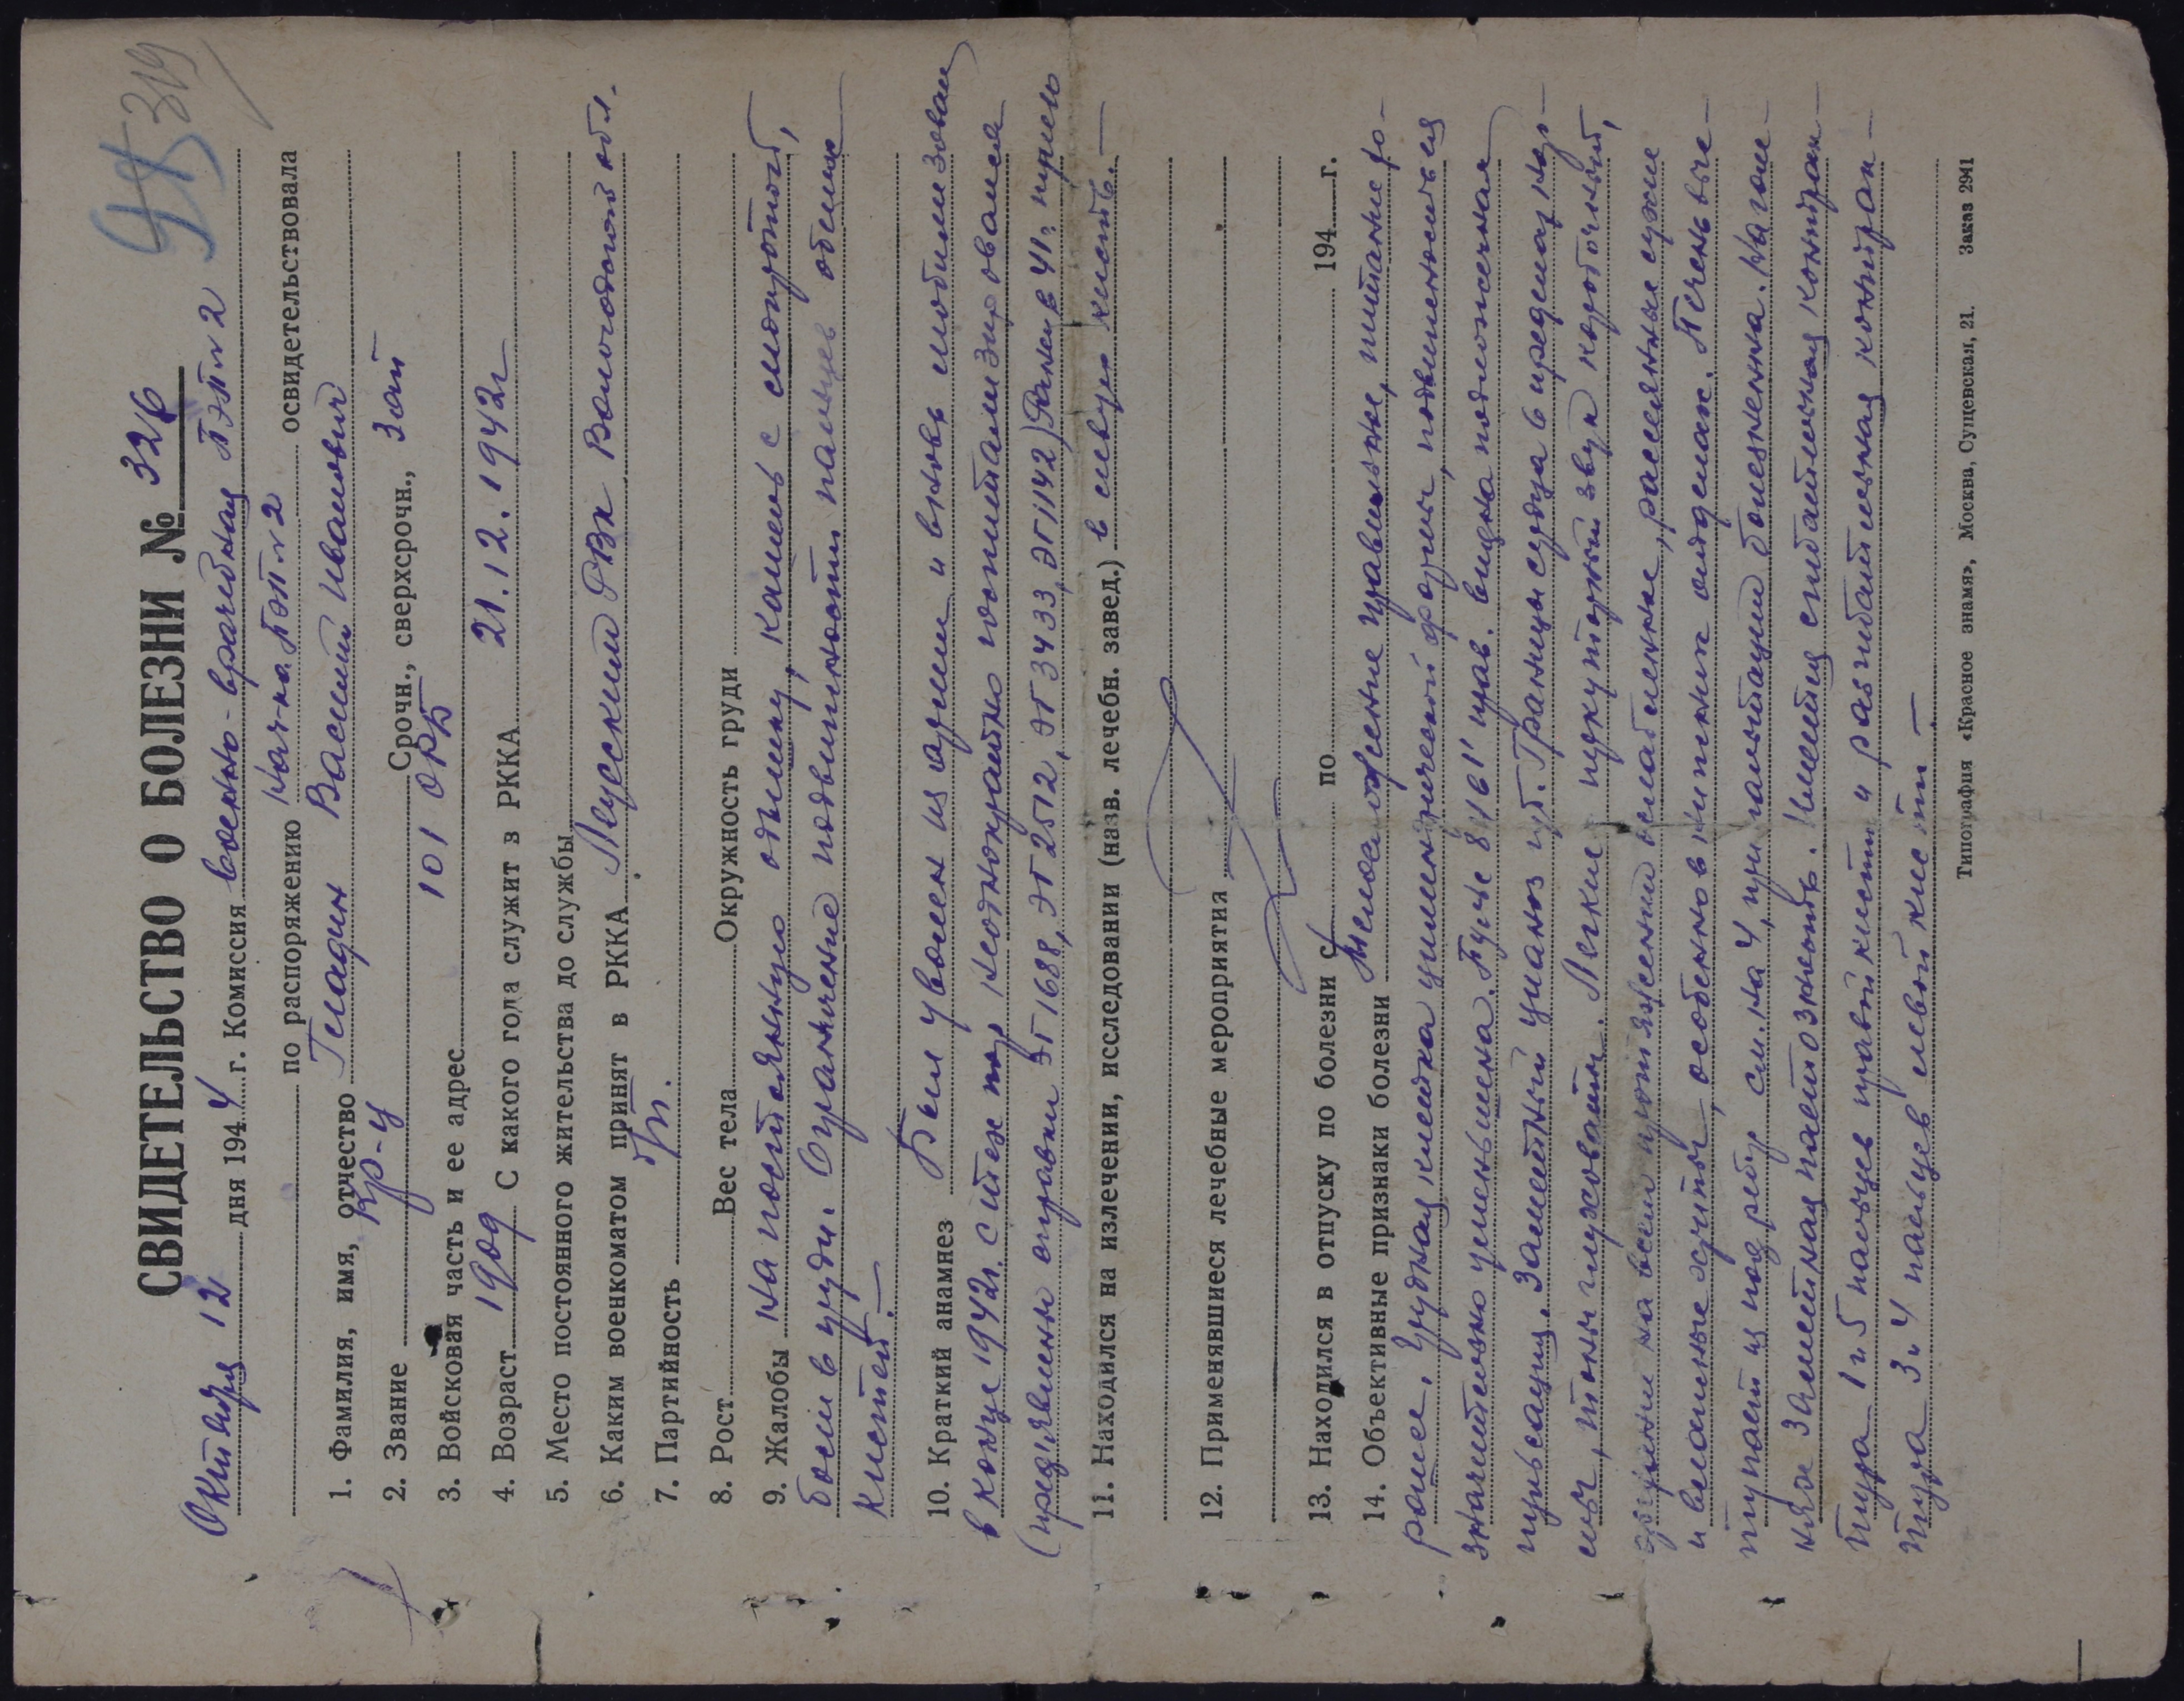 319
СВИДЕТЕЛЬСТВО О БОЛЕЗНИ № 326
Октября 12 дня 1944 г. Комиссия военно-врачебная ПЭП №2
по распоряжению нач-ка ПЭП №2 освидетельствовала
1. Фамилия, имя, отчество Гладин Василий Иванович
2. Звание кр-ц Срочн., сверхсрочн., зап
3. Войсковая часть и ее адрес 101 ОРБ
4. Возраст 1909 С какого года служит в РККА 21.12.1942г
5. Место постоянного жительства до службы
6. Каким военкоматом принят в РККА РВК Вологодской обл.
7. Партийность
8. Рост Вес тела Окружность груди
9. Жалобы На постоянную одышку, кашель с мокротой,
боли в груди. Ограничение подвижности пальцев обеих
кистей. —
10. Краткий анамнез Был уволен из армии и вновь мобилизован
в конце 1942г. С тех пор неоднократно госпитализировался
(предъявлено справки ЭГ 1688, ЭГ 2512, ЭГ 3433, ЭГ 1142) Ранен в 41г. пулею
11. Находился на излечении, исследовании (назв. лечебн. завед.) в левую кисть. —
12. Применявшиеся лечебные мероприятия
13. Находился в отпуску по болезни с по 194 г.
14. Объективные признаки болезни Телосложение правильное, питание хо-
рошее. Грудная клетка цилиндрической формы, подвижность ея
значительно уменьшена. Пульс 8 1/6 1' прав. видна подложечная
пульсация. Заметный цианоз губ. Границы сердца в пределах нор-
мы, тоны глуховаты. Легкие перкуторный звук коробочный,
дыхание на всем протяжении ослабленное, рассеянные сухие
и влажные хрипы, особенно в нижних отделах. Печень выс-
тупает из под ребер см. на 4, при пальпации болезненна. На голе-
нях заметная пастозность. Имеется сгибательная контрак-
тура 1 и 5 пальцев правой кисти и разгибательная контрак-
тура 3 и 4 пальцев левой кисти —
Типография «Красное знамя», Москва, Сущевская, 21. Заказ 2941